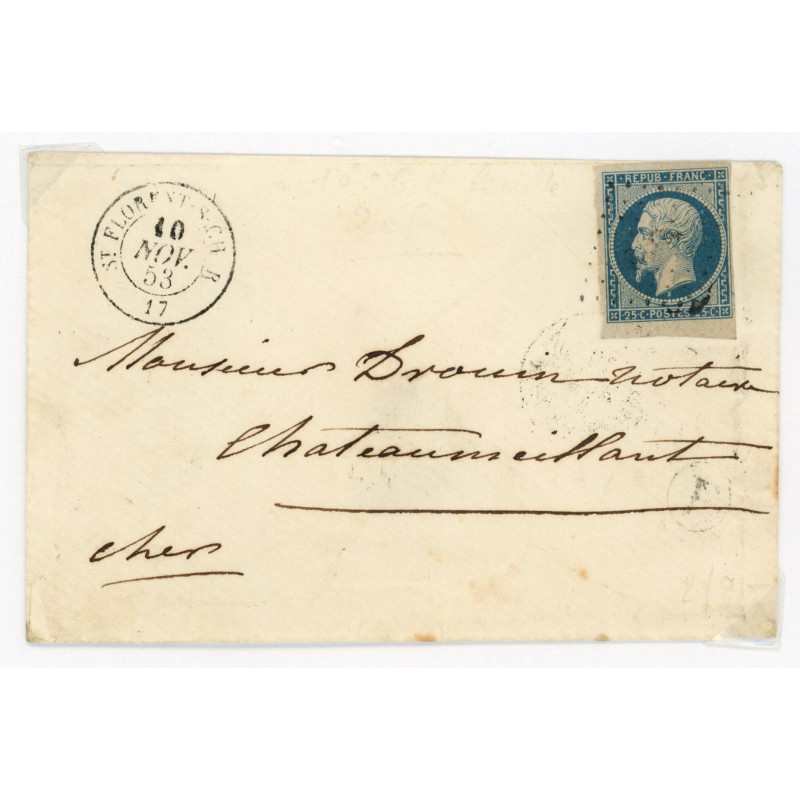 ST FLORENT-S-CH R.
10
NOV.
53
17
REPUB·FRANC·
25·C·POSTES·25·C·
Monsieur Drouin notaire
Chateaumeillant
cher